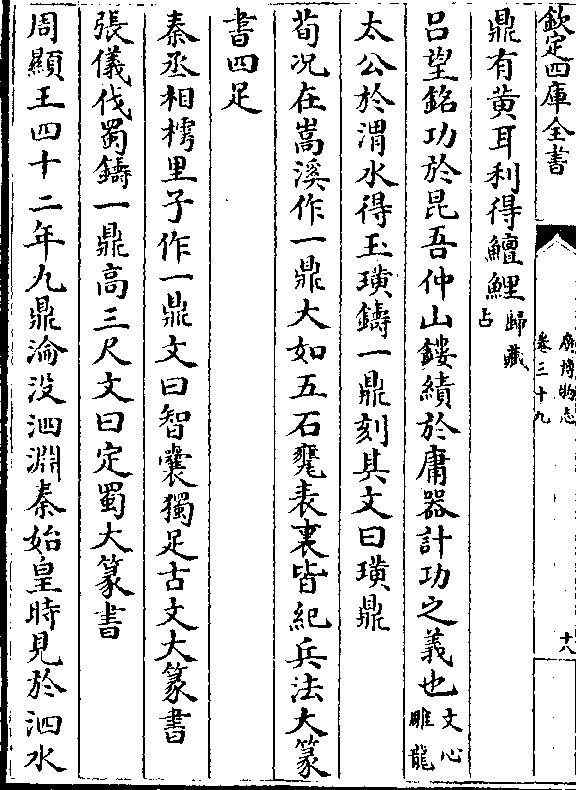 欽定四庫全書
廣博物志
卷三十九
十八
鼎有黄耳利得鱣鯉歸藏占
吕望銘功於昆吾仲山鏤績於庸器計功之義也文心雕龍
太公於渭水得玉璜鑄一鼎刻其文曰璜鼎
荀况在嵩溪作一鼎大如五石甕表裏皆紀兵法大篆
書四足
秦丞相樗里子作一鼎文曰智囊獨足古文大篆書
張儀伐蜀鑄一鼎高三尺文曰定蜀大篆書
周顯王四十二年九鼎淪没泗淵秦始皇時見於泗水